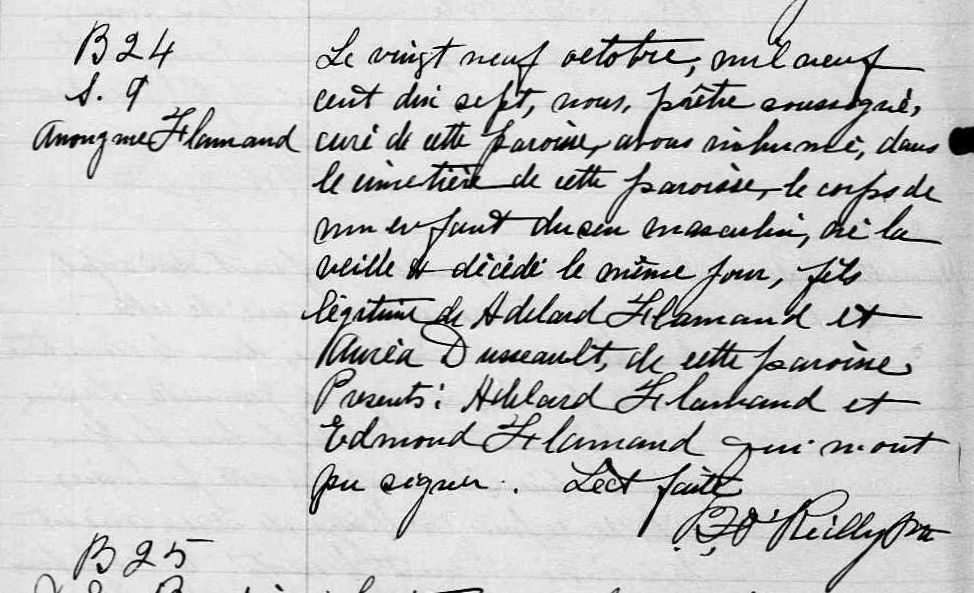 B 24
S. 9
Anonyme Flamand
Le vingt neuf octobre, mil neuf
cent dix sept, nous, prêtre soussigné,
curé de cette paroisse, avons inhumé, dans
le cimetière de cette paroisse, le corps de
un enfant du sexe masculin, né la
veille et décédé le même jour, fils
légitime de Adelard Flamand et
Auréa Dusseault, de cette paroisse.
Presents: Adelard Flamand et
Edmond Flamand qui n'ont
pu signer. Lect faite
O'Reilly Ptre
B 25